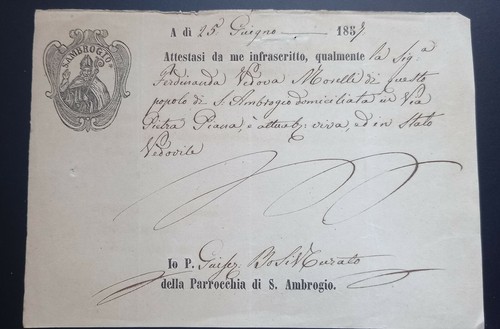 S. AMBROGIO
A dì 25 Giugno 1857
Attestasi da me infrascritto, qualmente la Sig.a
Ferdinanda Vedova Morelli di questo
popolo di S. Ambrogio domiciliata in Via
Pietra Piana, è attualm: viva, ed in Stato
Vedovile
Io P. Giusep. Bosi Curato
della Parrocchia di S. Ambrogio.